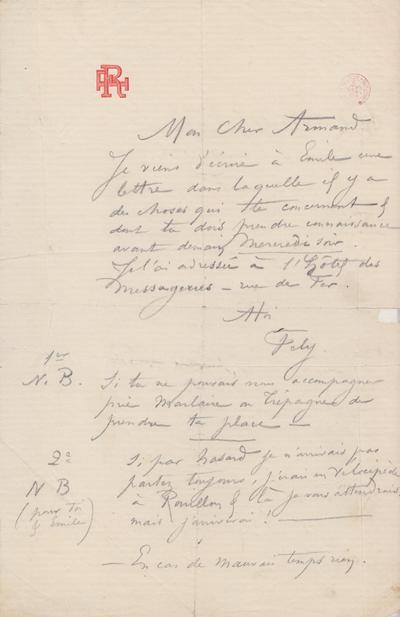 Mon Cher Armand
Je viens d'écrire à Emile une
lettre dans laquelle il y a
des choses qui te concernent &
dont tu dois prendre connaissance
avant demain Mercredi soir.
Je l'ai adressée à l'Hôtel des
Messageries – rue de Fer.
Fély
1er
N. B. Si tu ne pouvais nous accompagner
prie Marlaire ou Trépagne de
prendre ta place —
2°
Si par hasard je n'arrivais pas
N B
partez toujours, j'irai en Vélocipède
(pour toi
& Emile)
à & là je vous attendrais,
mais j'arriverai! —
— En cas de mauvais temps rien.